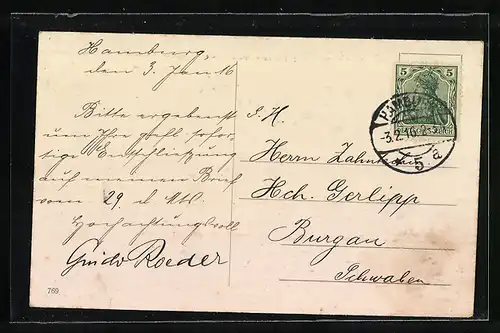 Hamburg,
den 3. Jan 16
Bitte ergebenst
um Ihre gefl. sofor-
tige Entschließung
auf meinen Brief
vom 29. d. Mts.
Hochachtungsvoll
Guido Roeder
769
S. H.
Herrn
Hch. Gerlipp
Burgau
Schwaben
5 5
HAMBURG
-3.2.16.
* 5. a